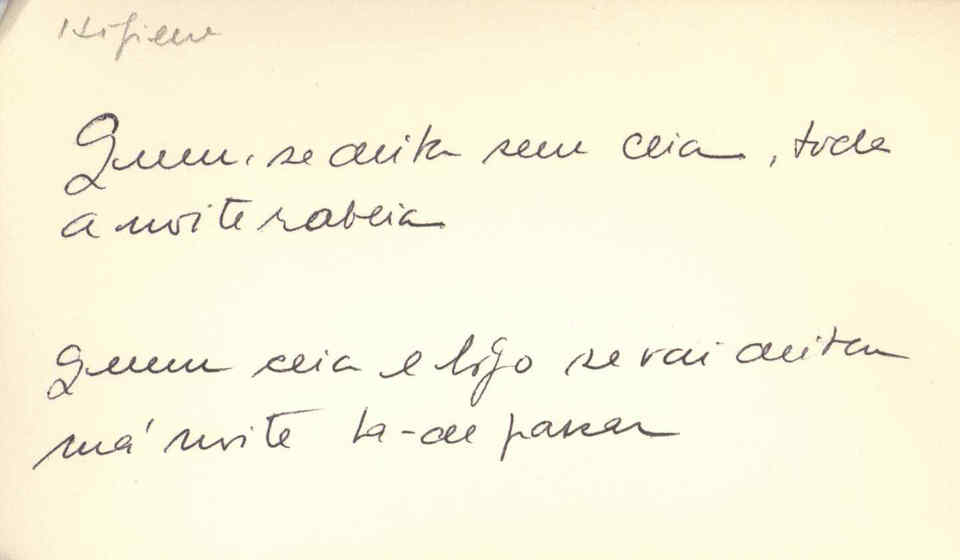 Higiene
Quem se deita sem ceia, toda
a noite rabeia
Quem ceia e logo se vai deitar
má noite há-de passar